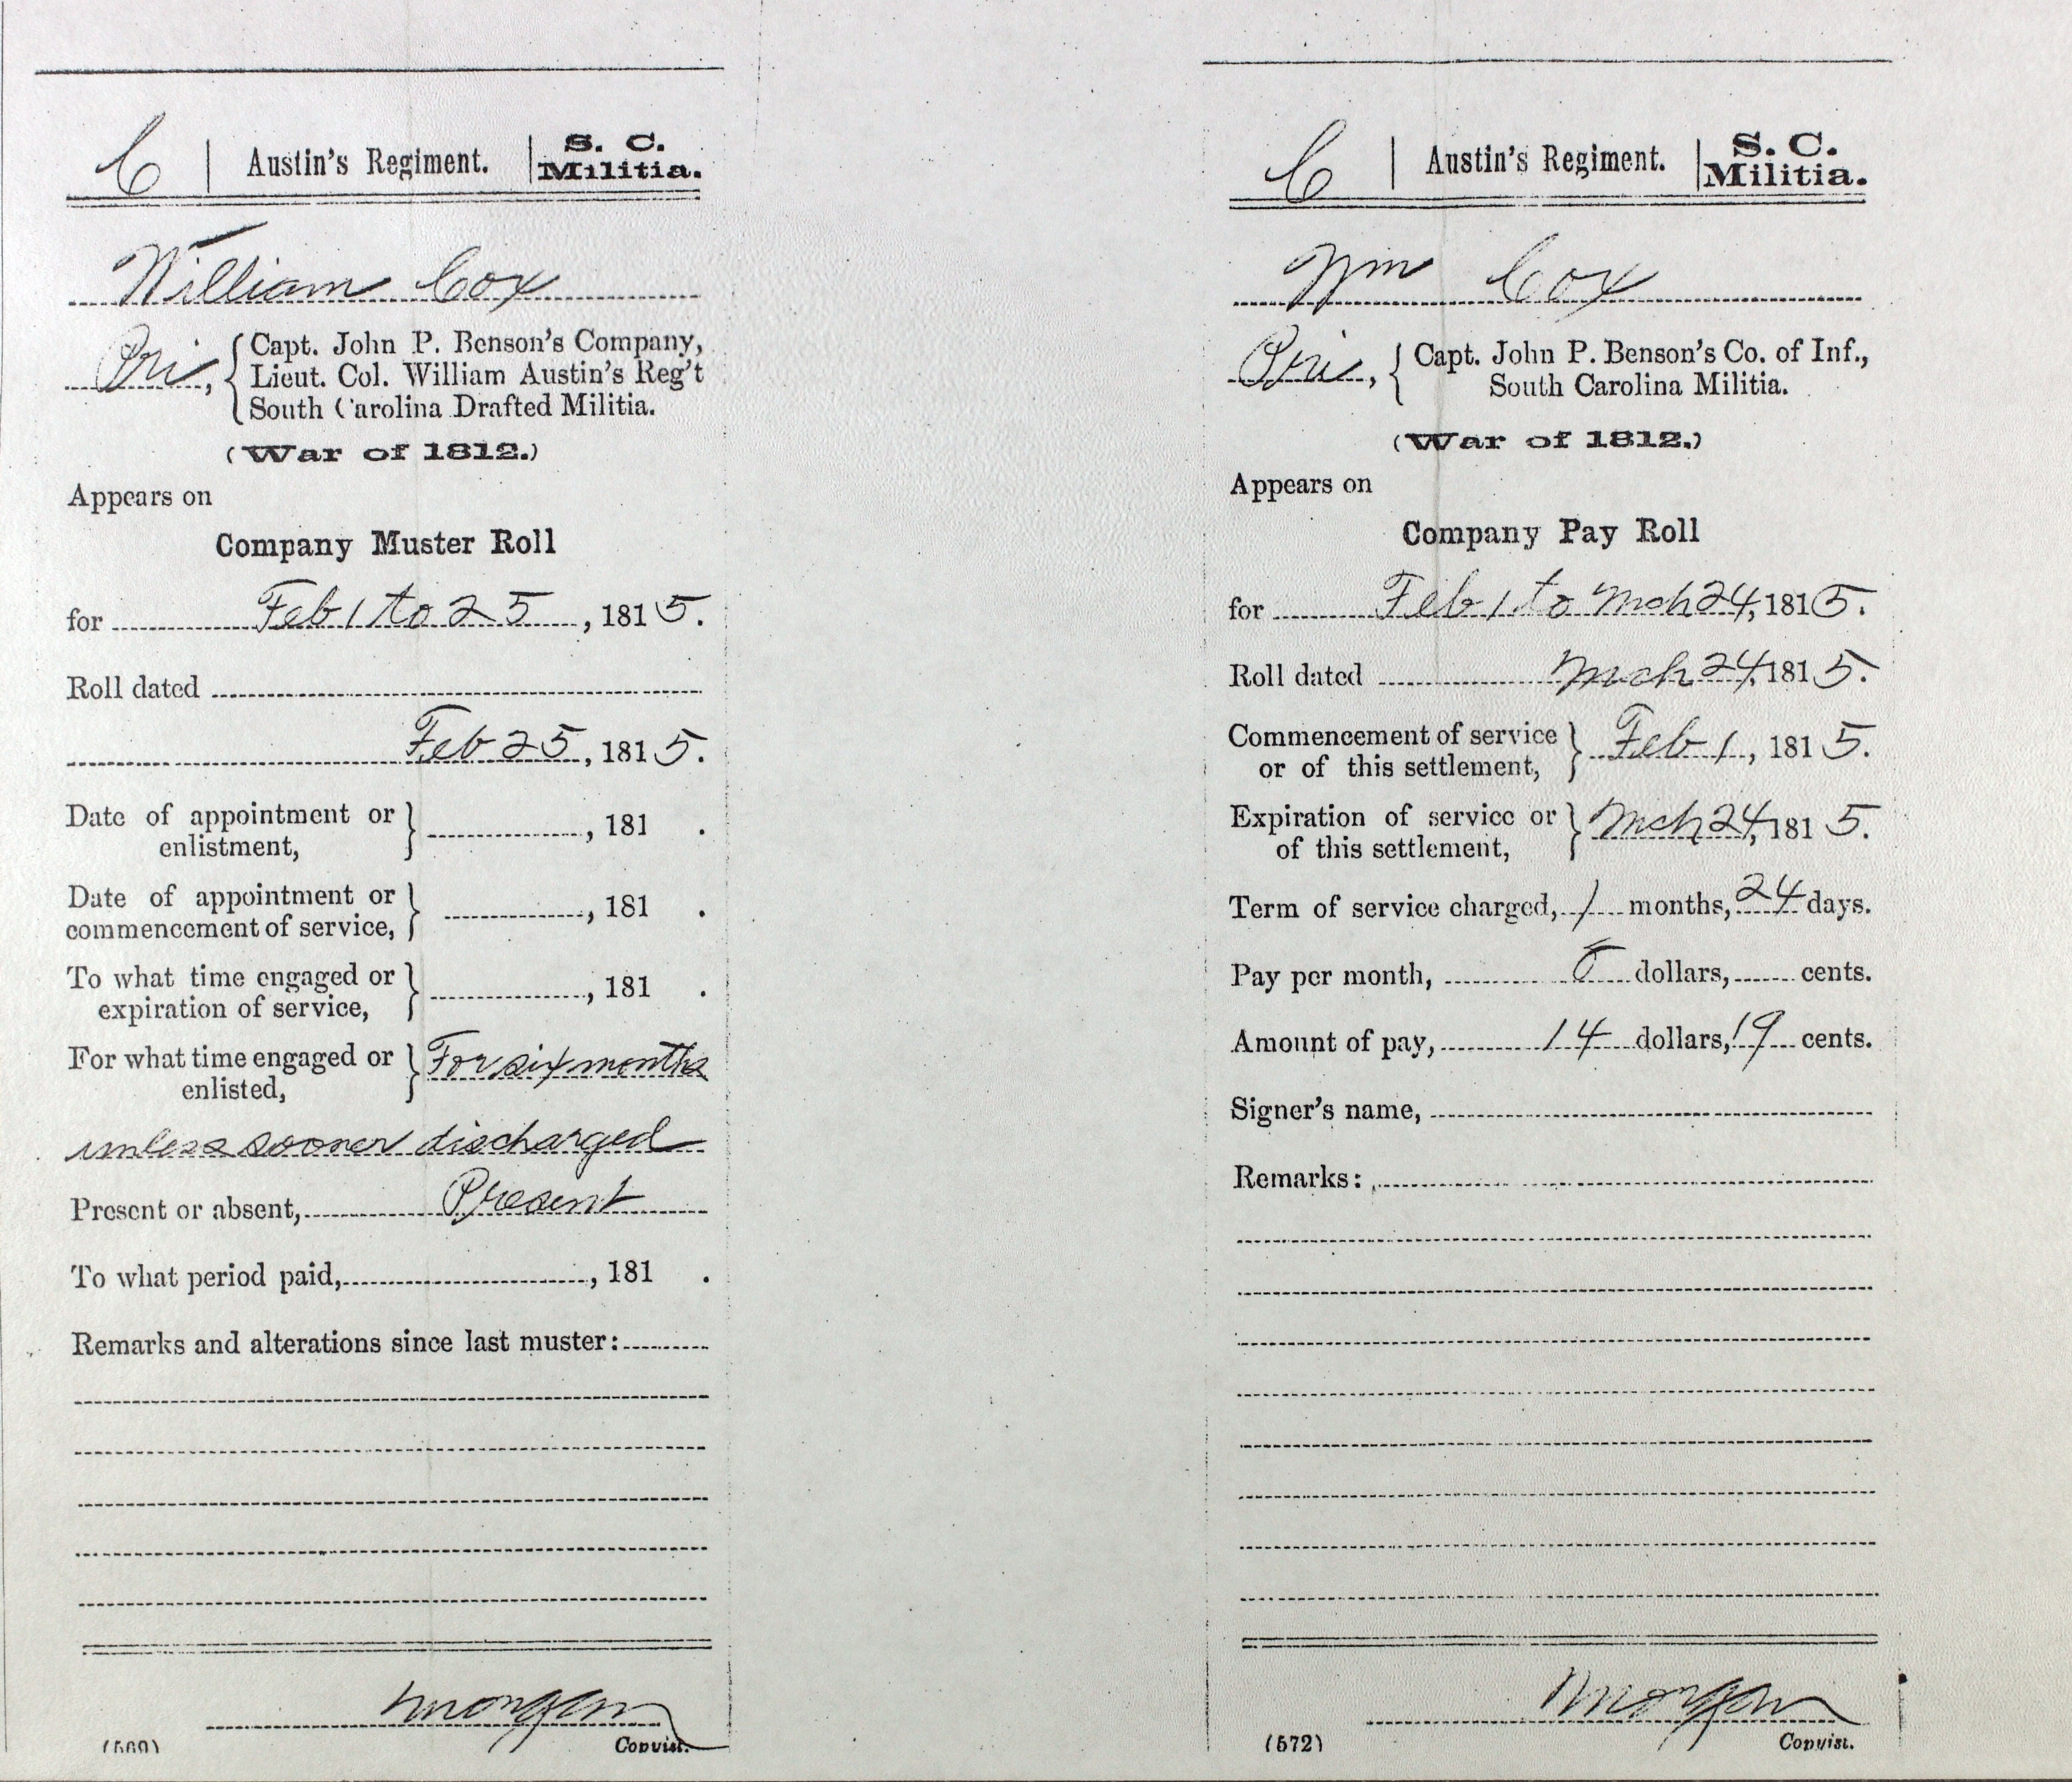 C | Austin's Regiment. | S. C. Militia.
William Cox
Pri, { Capt. John P. Benson's Company,
Lieut. Col. William Austin's Reg't
South Carolina Drafted Militia.
(War of 1812.)
Appears on
Company Muster Roll
for Feb 1 to 25, 1815.
Roll dated
Feb 25, 1815.
Date of appointment or
enlistment, } , 181 .
Date of appointment or
commencement of service, } , 181 .
To what time engaged or
expiration of service, } , 181 .
For what time engaged or
enlisted, } For six months
unless sooner discharged
Present or absent, Present
To what period paid, , 181 .
Remarks and alterations since last muster:
Morgan
(569) Copyist.
C | Austin's Regiment. | S. C. Militia.
Wm Cox
Pri, { Capt. John P. Benson's Co. of Inf.,
South Carolina Militia.
(War of 1812.)
Appears on
Company Pay Roll
for Feb 1 to Mch 24, 1815.
Roll dated Mch 24, 1815.
Commencement of service
or of this settlement, } Feb 1, 1815.
Expiration of service or
of this settlement, } Mch 24, 1815.
Term of service charged, 1 months, 24 days.
Pay per month, dollars, cents.
Amount of pay, 14 dollars, 19 cents.
Signer's name,
Remarks:
Morgan
(572) Copyist.